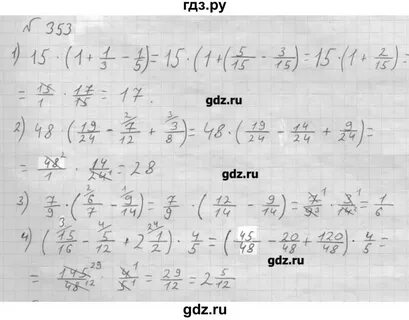 гдз.ру
№ 353
1) 15 · (1 + 1/3 − 1/5) = 15 · (1 + (5/15 − 3/15) = 15 · (1 + 2/15) =
= 15/1 · 17/15 = 17.
gdz.ru
2) 48 · (19/24 − 7/12 + 3/8) = 48 · (19/24 − 14/24 + 9/24) =
= 48/1 · 14/24 = 28
gdz.ru
3) 7/9 · (6/7 − 9/14) = 7/9 · (12/14 − 9/14) = 7/9 · 3/14 = 1/6
4) (15/16 − 5/12 + 2 1/2) · 4/5 = (45/48 − 20/48 + 120/48) · 4/5 =
= 145/48 · 4/5 = 29/12 = 2 5/12
gdz.ru
gdz.ru